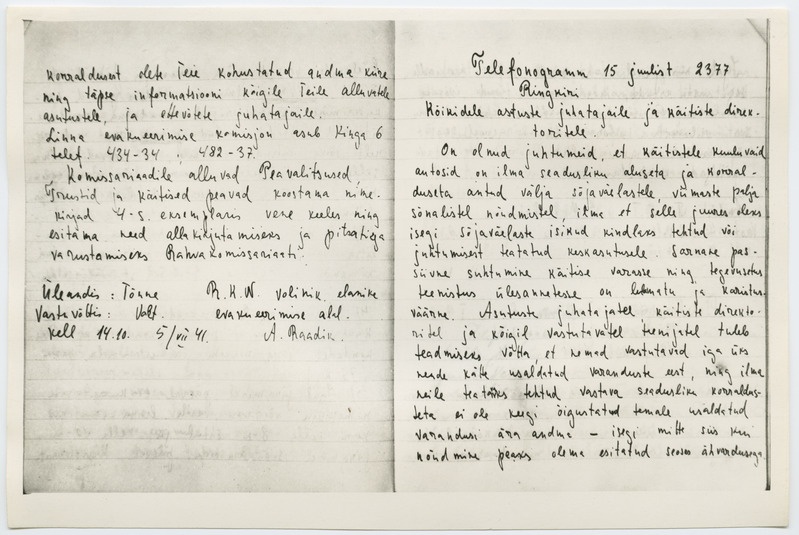 korraldusest olete Teie kohustatud andma kiire
ning täpse informatsiooni kõigile Teile alluvatele
asutustele, ja ettevõtete juhatajaile.
Linna evakueerimise komisjon asub Kinga 6
telef. 434-34 . 482-37.
Komissariaadile alluvad Peavalitsused,
Trustid ja käitised peavad koostama nime-
kirjad 4-s eksemplaris vene keeles ning
esitama need allakirjutamiseks ja pitsatiga
varustamiseks Rahvakomissariaati.
Üleandis: Tõnne R.K.N. volinik elanike
Vastuvõttis: Volt. evakueerimise alal.
kell 14.10. 5/VII 41. A. Raadik.
Telefonogramm 15 juulist 2377
Ringkiri
Kõikidele astuste juhatajaile ja käitiste direk-
toritele.
On olnud juhtumeid, et käitistele kuuluvaid
autosid on ilma seadusliku aluseta ja korral-
duseta antud välja sõjaväelastele, viimaste palja
sõnalistel nõudmistel, ilma et selle juures oleks
isegi sõjaväelaste isikud kindlaks tehtud või
juhtumisest teatatud keskasutusele. Sarnane pas-
siivne suhtumine käitise varasse ning tegevusetus
teenistus ülesannetesse on lubmatu ja karistus-
väärne. Asutuste juhatajatel, käitiste direkto-
ritel ja kõigil vastutavatel teenijatel tuleb
teadmiseks võtta, et nemad vastutavid iga üks
nende kätte usaldatud varanduste eest, ning ilma
neile teatavaks tehtud vastava seadusliku korraldus-
seta ei ole keegi õigustatud temale usaldatud
varandusi ära andma – isegi mitte siis kui
nõudmine peaks olema esitatud seoses ähvardusega.